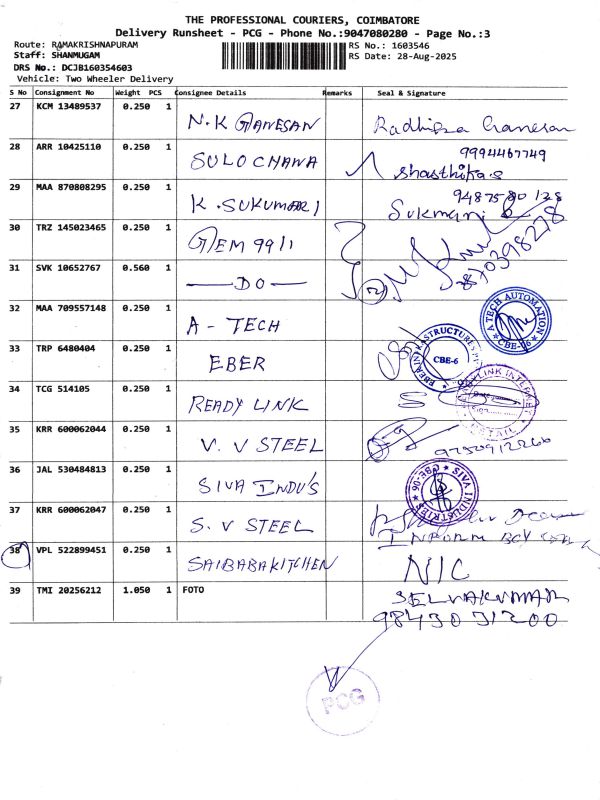 THE PROFESSIONAL COURIERS, COIMBATORE
Delivery Runsheet - PCG - Phone No.:9047080280 - Page No.:3
Route: RAMAKRISHNAPURAM
RS No.: 1603546
Staff: SHANMUGAM
RS Date: 28-Aug-2025
DRS No.: DCJB160354603
Vehicle: Two Wheeler Delivery
S No Consignment No Weight PCS Consignee Details Remarks Seal & Signature
27 KCM 13489537 0.250 1 N.K GANESAN Radhika Ganesan
28 ARR 10425110 0.250 1 SULOCHANA 9994467749
Shasthika.S
29 MAA 870808295 0.250 1 K.SUKUMARI 9487580128
Sukmani
30 TRZ 145023465 0.250 1 GEM 9911
8870398278
31 SVK 10652767 0.560 1 DO
32 MAA 709557148 0.250 1 A - TECH
A TECH AUTOMATION
CBE-06
33 TRP 6480404 0.250 1 EBER
CBE-6
34 TCG 514105 0.250 1 READY LINK
35 KRR 600062044 0.250 1 V. V STEEL
36 JAL 530484813 0.250 1 SIVA INDU'S
SIVA INDUSTRIES
CBE-06
37 KRR 600062047 0.250 1 S. V STEEL
INFORM
38 VPL 522899451 0.250 1 SAIBABAKITCHEN NIC
39 TMI 20256212 1.050 1 FOTO SELVAKUMAR
9843031200
PCG